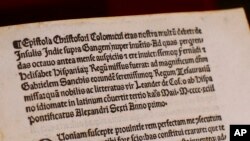 Epistola Christofori Colom: cui etas nostra multū debet: de
Insulis Indie supra Gangem nuper inuētis. Ad quas perquiren
das octauo antea mense auspiciis & ere inuictissemorum Fernādi &
Helisabet Hispaniarum Regum missus fuerat: ad magnificum dñm
Gabrielem Sanchis eorundē serenissimorum Regum Tesaurariū
missa: quā nobilis ac litteratus vir Leander de Cosco ab Hispa
no idiomate in latinum cōuertit tertio kal's Maii M.cccc.xciii
Pontificatus Alexandri Sexti Anno primo.
Quoniam suscepte prouintie rem perfectam me
AP